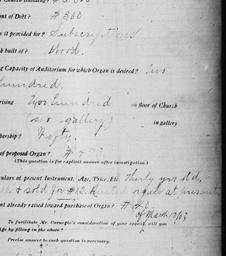 nt of Debt? # 300
is it provided for? Subscriptions
h built of? Wood.
g Capacity of Auditorium for which Organ is desired? Two
Hundred.
rising Two Hundred on floor of Church
(no gallery) in gallery
bership? Fifty.
of proposed Organ? #
(This question is for explicit answer after investigation.)
ulars of present Instrument, Age, Price, Etc. Thirty yrs old,
& sold for # organ at present
nt already raised toward purchase of Organ? #
March
To facilitate Mr. Carnegie's consideration of your appeal, will you
ige by filling in the above?
Precise answer to each question is necessary.